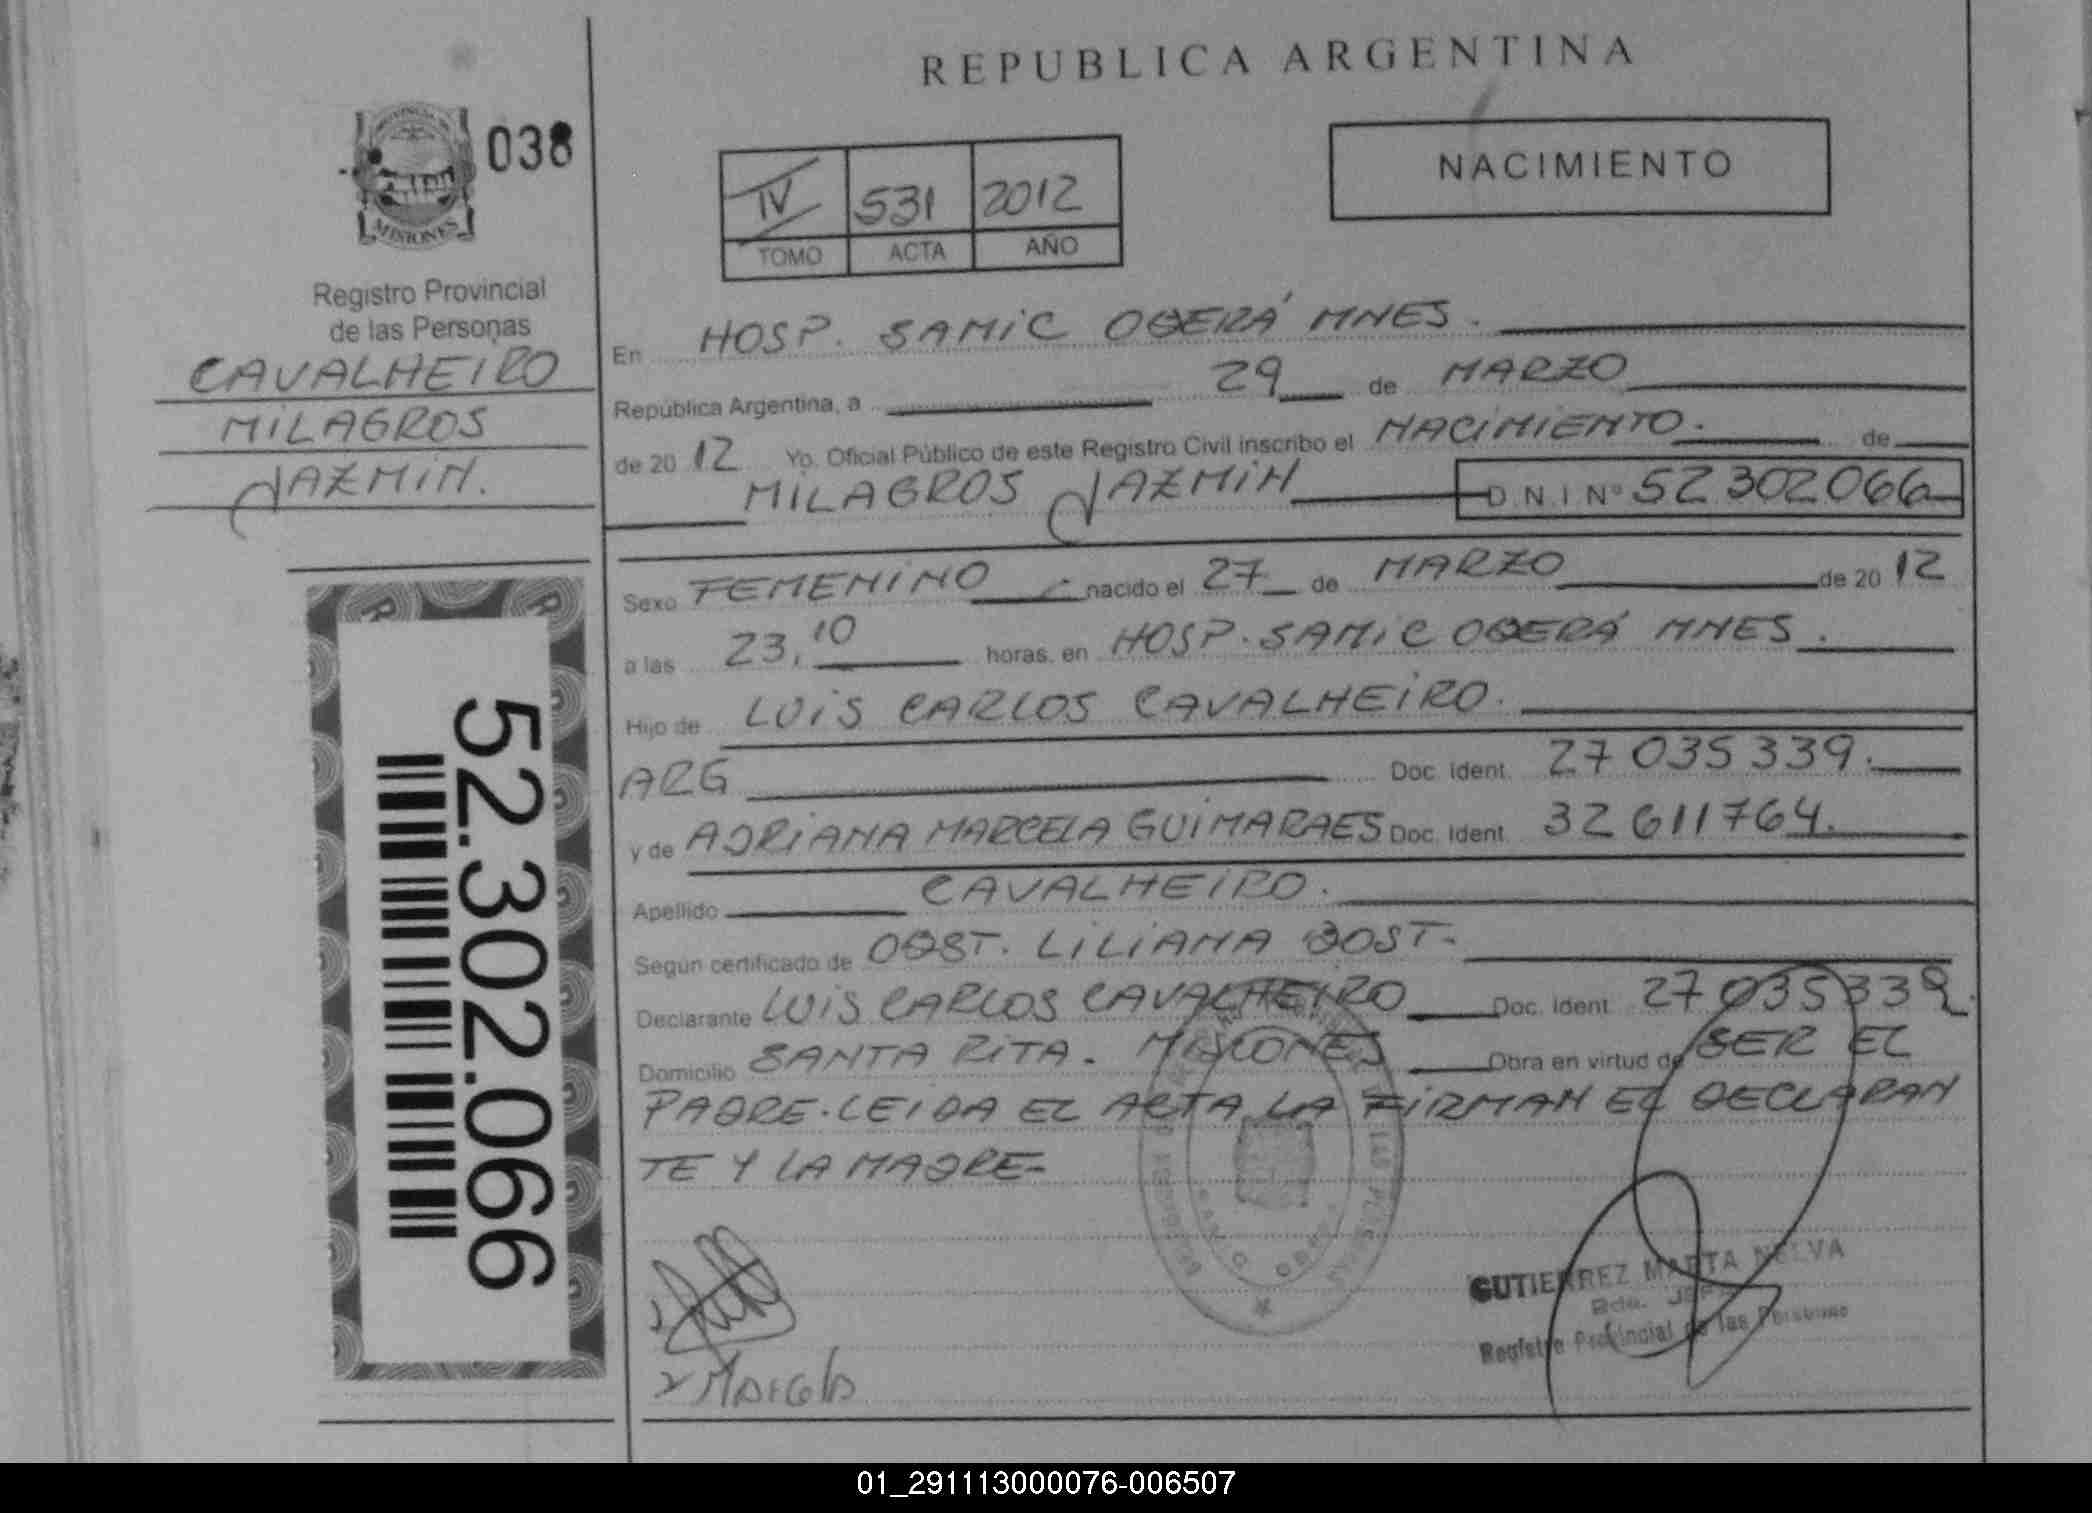 REPUBLICA ARGENTINA
PROVINCIA DE
MISIONES
038
Registro Provincial
de las Personas
CAVALHEIRO
MILAGROS
JAZMIN.
52.302.066
IV 531 2012
TOMO ACTA AÑO
NACIMIENTO
En HOSP. SAMIC OBERÁ MNES.
República Argentina, a 29 de MARZO
de 20 12 Yo. Oficial Público de este Registro Civil inscribo el NACIMIENTO. de
MILAGROS JAZMIN D.N.I Nº 52 302 066
Sexo FEMENINO nacido el 27 de MARZO de 20 12
a las 23,10 horas, en HOSP. SAMIC OBERÁ MNES.
Hijo de LUIS CARLOS CAVALHEIRO.
ARG Doc. Ident. 27 035 339.
y de ADRIANA MARCELA GUIMARAES Doc. Ident. 32 611764.
Apellido CAVALHEIRO.
Según certificado de OBST. LILIANA DOST-
Declarante LUIS CARLOS CAVALHEIRO Doc. Ident. 27 035 339.
Domicilio SANTA RITA. MISIONES Obra en virtud de SER EL
PADRE. LEIDA EL ACTA LA FIRMAN EL DECLARAN
TE Y LA MADRE-
GUTIERREZ MARTA NELVA
Registro Provincial de las Personas
01_291113000076-006507